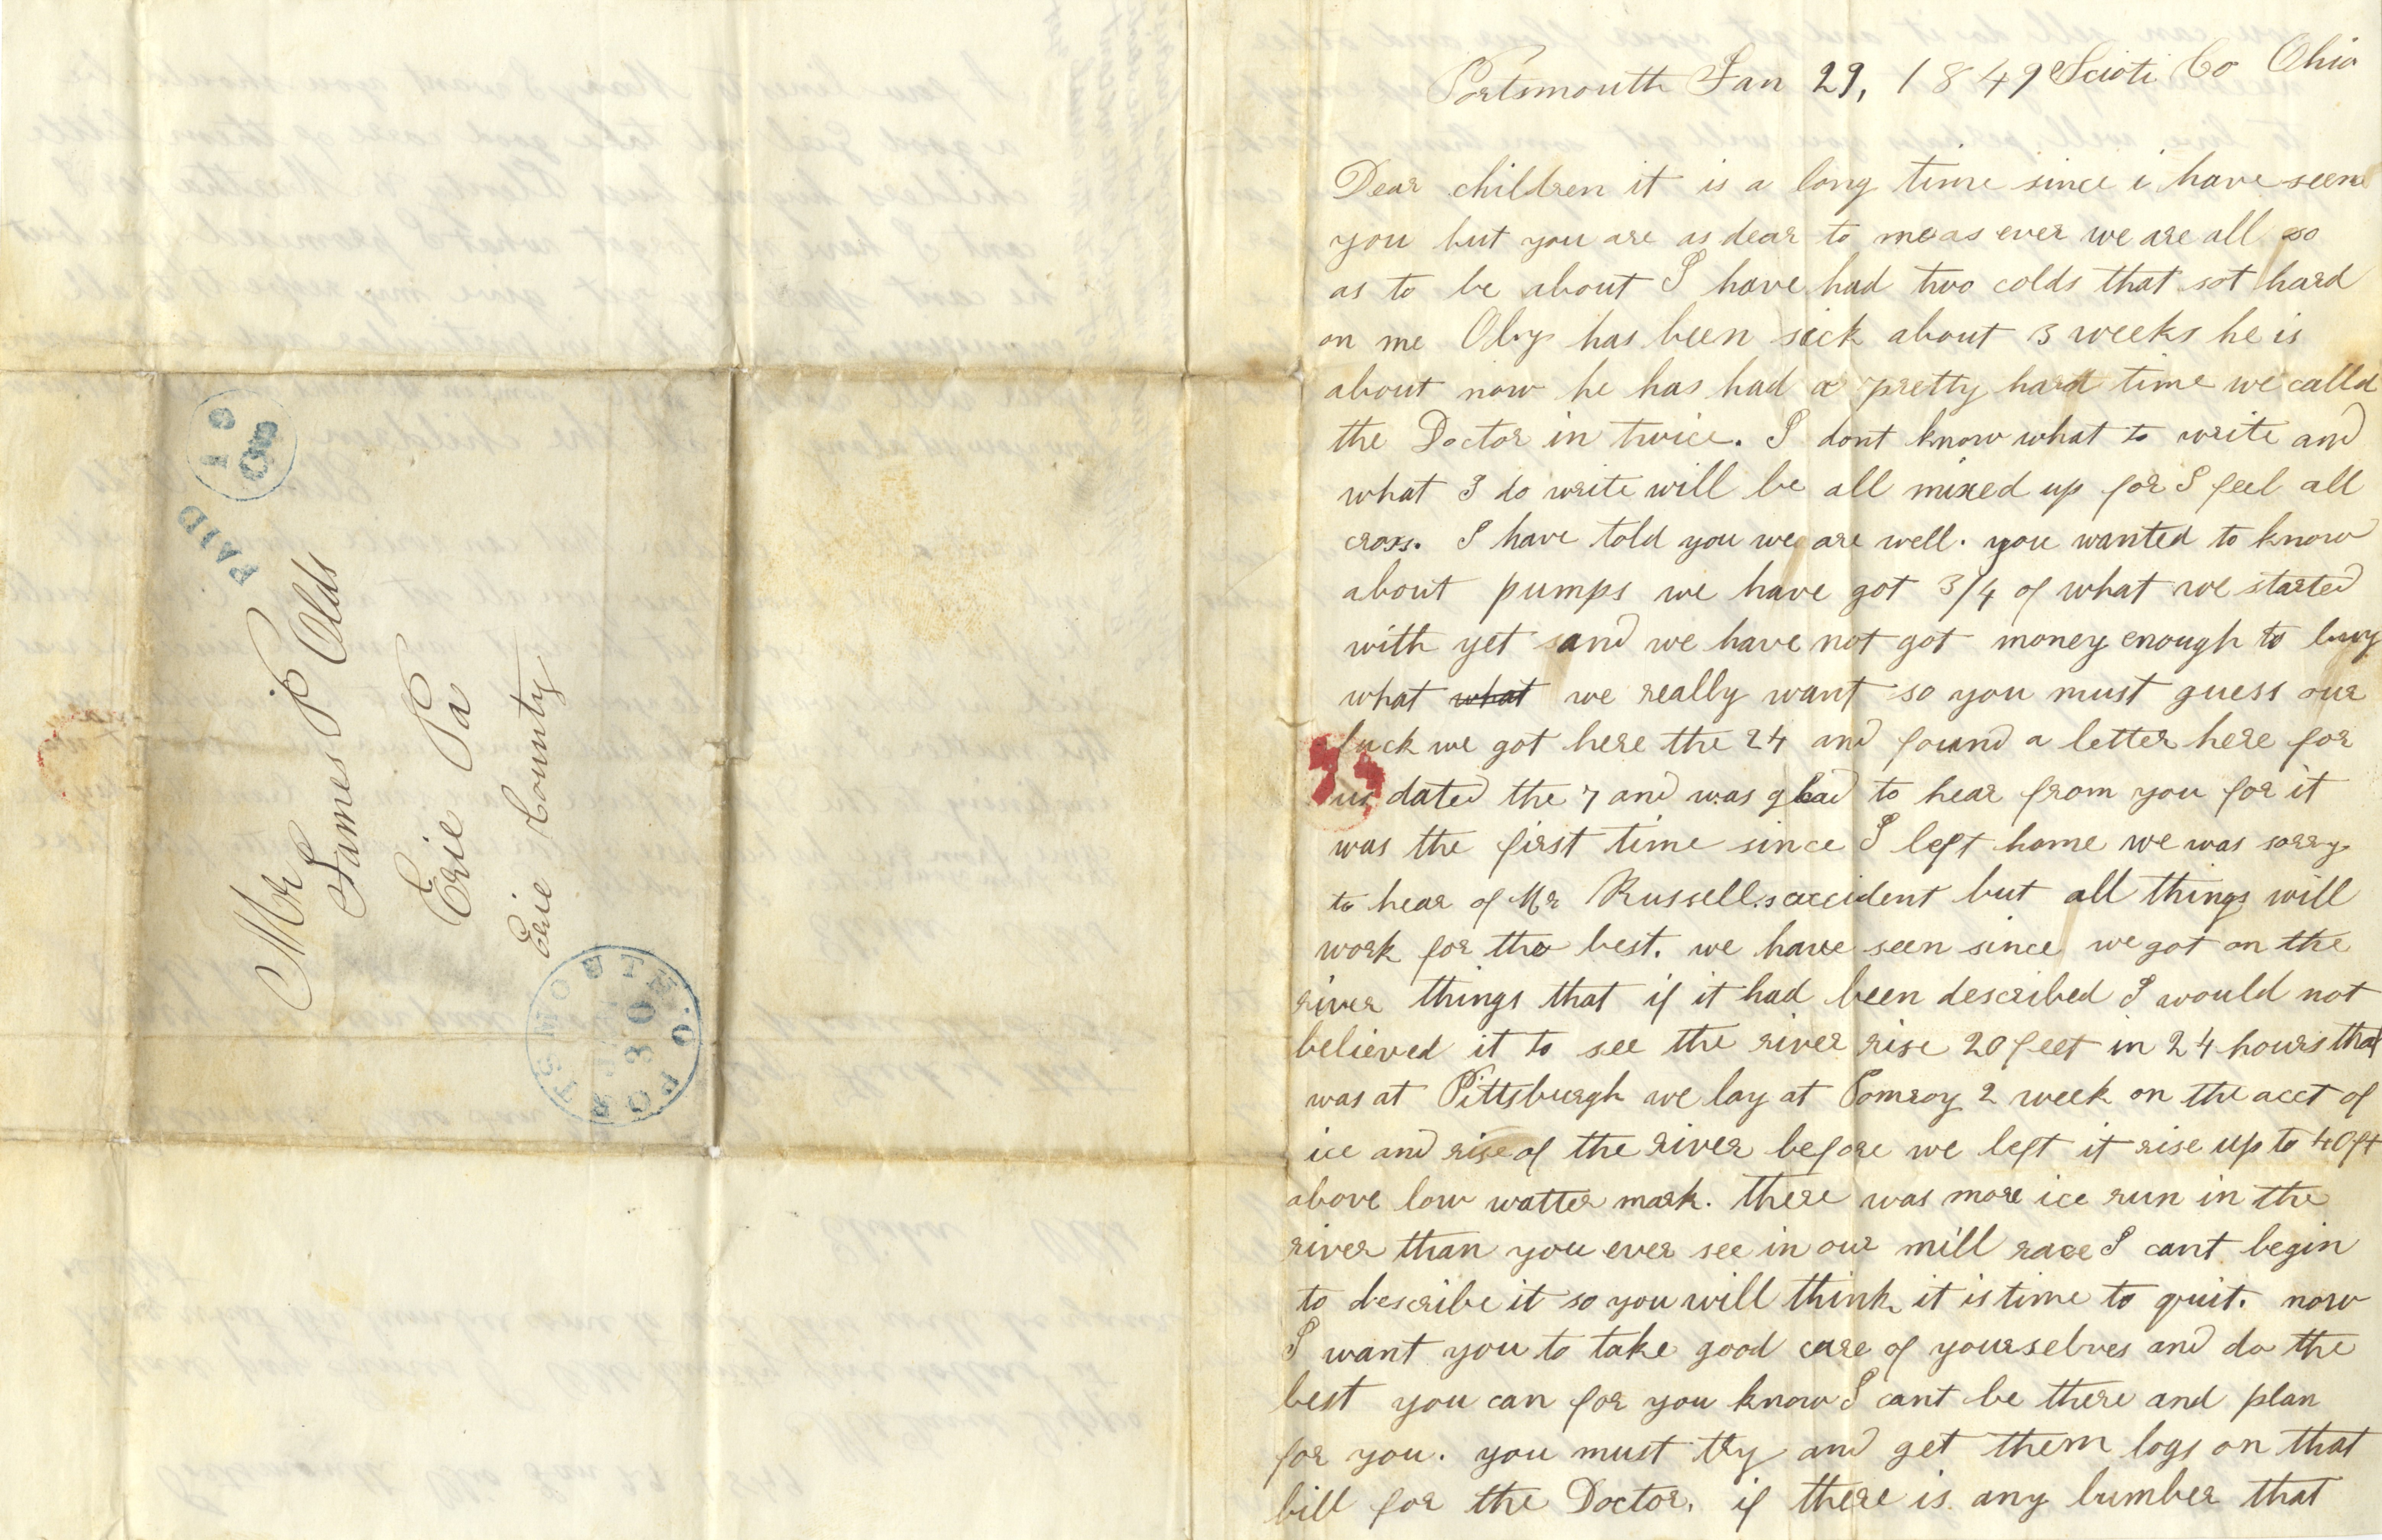 PAID 10
Mr
James P Olds
Erie Pa
Erie County
PORTSMOUTH. O.
30
Portsmouth Jan 29, 1849 Scioti Co Ohio
Dear children it is a long time since i have seen
you but you are as dear to me as ever we are all so
as to be about I have had two colds that sot hard
on me Oby has been sick about 3 weeks he is
about now he has had a pretty hard time we calld
the Doctor in twice. I dont know what to write and
what I do write will be all mixed up for I feel all
cross. I have told you we are well. you wanted to know
about pumps we have got 3/4 of what we started
with yet and we have not got money enough to buy
what what we really want so you must guess our
luck we got here the 24 and found a letter here for
us dated the 7 and was glad to hear from you for it
was the first time since I left home we was sorry
to hear of Mr Russells accident but all things will
work for the best. we have seen since we got on the
river things that if it had been described I would not
believed it to see the river rise 20 feet in 24 hours that
was at Pittsburgh we lay at Pomroy 2 week on the acct of
ice and rise of the river before we left it rise up to 40 ft
above low watter mark. there was more ice run in the
river than you ever see in our mill race I cant begin
to describe it so you will think it is time to quit. now
I want you to take good care of yourselves and do the
best you can for you know I cant be there and plan
for you. you must try and get them logs on that
bill for the Doctor. if there is any lumber that